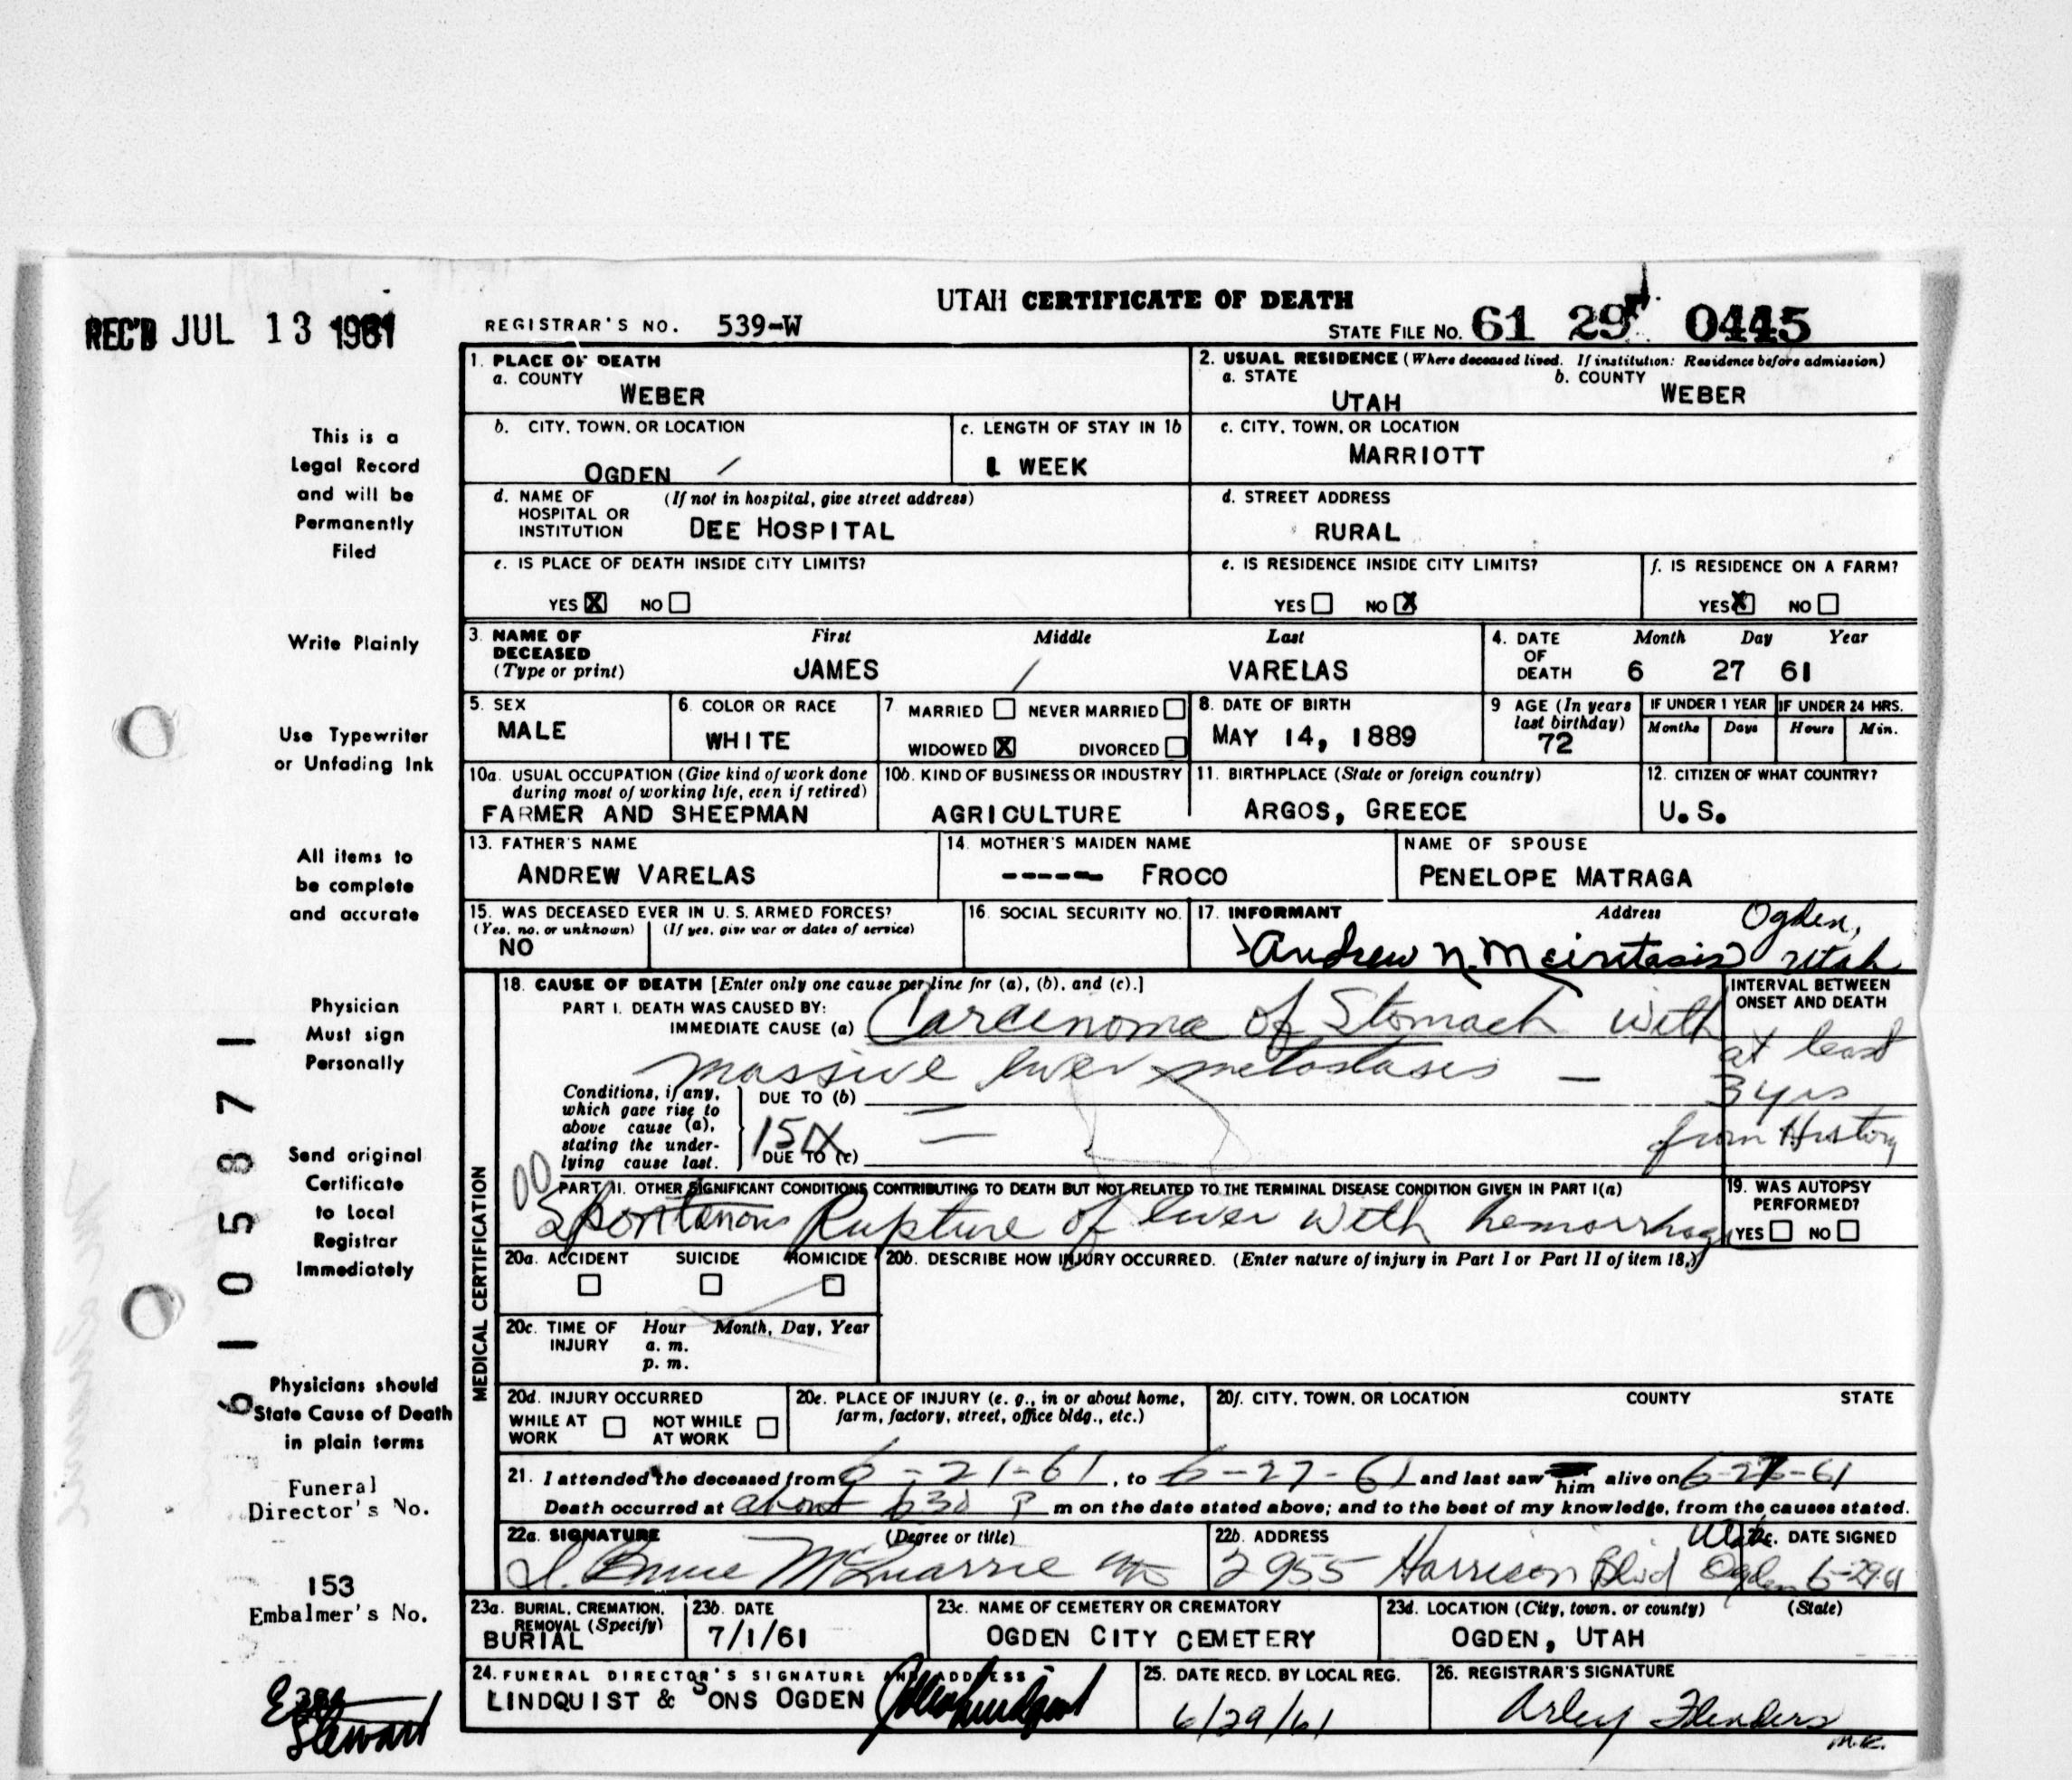 UTAH CERTIFICATE OF DEATH
REC'D JUL 13 1961
REGISTRAR'S NO. 539-W
STATE FILE NO. 61 29 0445
1. PLACE OF DEATH
a. COUNTY
WEBER
2. USUAL RESIDENCE (Where deceased lived. If institution: Residence before admission)
a. STATE
UTAH
b. COUNTY
WEBER
b. CITY, TOWN, OR LOCATION
OGDEN
c. LENGTH OF STAY IN 1b
1 WEEK
c. CITY, TOWN, OR LOCATION
MARRIOTT
d. NAME OF HOSPITAL OR INSTITUTION
(If not in hospital, give street address)
DEE HOSPITAL
d. STREET ADDRESS
RURAL
e. IS PLACE OF DEATH INSIDE CITY LIMITS?
YES X NO
e. IS RESIDENCE INSIDE CITY LIMITS?
YES NO X
f. IS RESIDENCE ON A FARM?
YES X NO
3. NAME OF DECEASED
(Type or print)
First Middle Last
JAMES / VARELAS
4. DATE OF DEATH
Month Day Year
6 27 61
5. SEX
MALE
6. COLOR OR RACE
WHITE
7. MARRIED NEVER MARRIED
WIDOWED X DIVORCED
8. DATE OF BIRTH
MAY 14, 1889
9 AGE (In years last birthday)
72
IF UNDER 1 YEAR
Months Days
IF UNDER 24 HRS.
Hours Min.
10a. USUAL OCCUPATION (Give kind of work done during most of working life, even if retired)
FARMER AND SHEEPMAN
10b. KIND OF BUSINESS OR INDUSTRY
AGRICULTURE
11. BIRTHPLACE (State or foreign country)
ARGOS, GREECE
12. CITIZEN OF WHAT COUNTRY?
U.S.
13. FATHER'S NAME
ANDREW VARELAS
14. MOTHER'S MAIDEN NAME
----- FROCO
NAME OF SPOUSE
PENELOPE MATRAGA
15. WAS DECEASED EVER IN U. S. ARMED FORCES?
(Yes, no, or unknown) (If yes, give war or dates of service)
NO
16. SOCIAL SECURITY NO.
17. INFORMANT Address
Andrew N. Meintasis Ogden, Utah
MEDICAL CERTIFICATION
18. CAUSE OF DEATH [Enter only one cause per line for (a), (b), and (c).]
PART I. DEATH WAS CAUSED BY:
IMMEDIATE CAUSE (a) Carcinoma of Stomach with
massive liver metastasis —
INTERVAL BETWEEN ONSET AND DEATH
at least
3 yrs
from History
Conditions, if any, which gave rise to above cause (a), stating the underlying cause last.
DUE TO (b) —
151X —
DUE TO (c)
00
PART II. OTHER SIGNIFICANT CONDITIONS CONTRIBUTING TO DEATH BUT NOT RELATED TO THE TERMINAL DISEASE CONDITION GIVEN IN PART I(a)
Spontanous Rupture of liver with hemorrhage
19. WAS AUTOPSY PERFORMED?
YES NO
20a. ACCIDENT SUICIDE HOMICIDE
20b. DESCRIBE HOW INJURY OCCURRED. (Enter nature of injury in Part I or Part II of item 18.)
20c. TIME OF INJURY
Hour Month, Day, Year
a. m.
p. m.
20d. INJURY OCCURRED
WHILE AT WORK NOT WHILE AT WORK
20e. PLACE OF INJURY (e. g., in or about home, farm, factory, street, office bldg., etc.)
20f. CITY, TOWN, OR LOCATION COUNTY STATE
21. I attended the deceased from 6-21-61, to 6-27-61 and last saw him alive on 6-27-61
Death occurred at about 630 P m on the date stated above; and to the best of my knowledge, from the causes stated.
22a. SIGNATURE (Degree or title)
I. Bruce McQuarrie MD
22b. ADDRESS
2955 Harrison Blvd Ogden Utah
22c. DATE SIGNED
6-29-61
23a. BURIAL, CREMATION, REMOVAL (Specify)
BURIAL
23b. DATE
7/1/61
23c. NAME OF CEMETERY OR CREMATORY
OGDEN CITY CEMETERY
23d. LOCATION (City, town, or county) (State)
OGDEN, UTAH
24. FUNERAL DIRECTOR'S SIGNATURE AND ADDRESS
LINDQUIST & SONS OGDEN
25. DATE RECD. BY LOCAL REG.
6/29/61
26. REGISTRAR'S SIGNATURE
Arley Flinders
M.K.
This is a
Legal Record
and will be
Permanently
Filed
Write Plainly
Use Typewriter
or Unfading Ink
All items to
be complete
and accurate
Physician
Must sign
Personally
Send original
Certificate
to Local
Registrar
Immediately
Physicians should
State Cause of Death
in plain terms
Funeral
Director's No.
153
Embalmer's No.
Stewart
61 05871